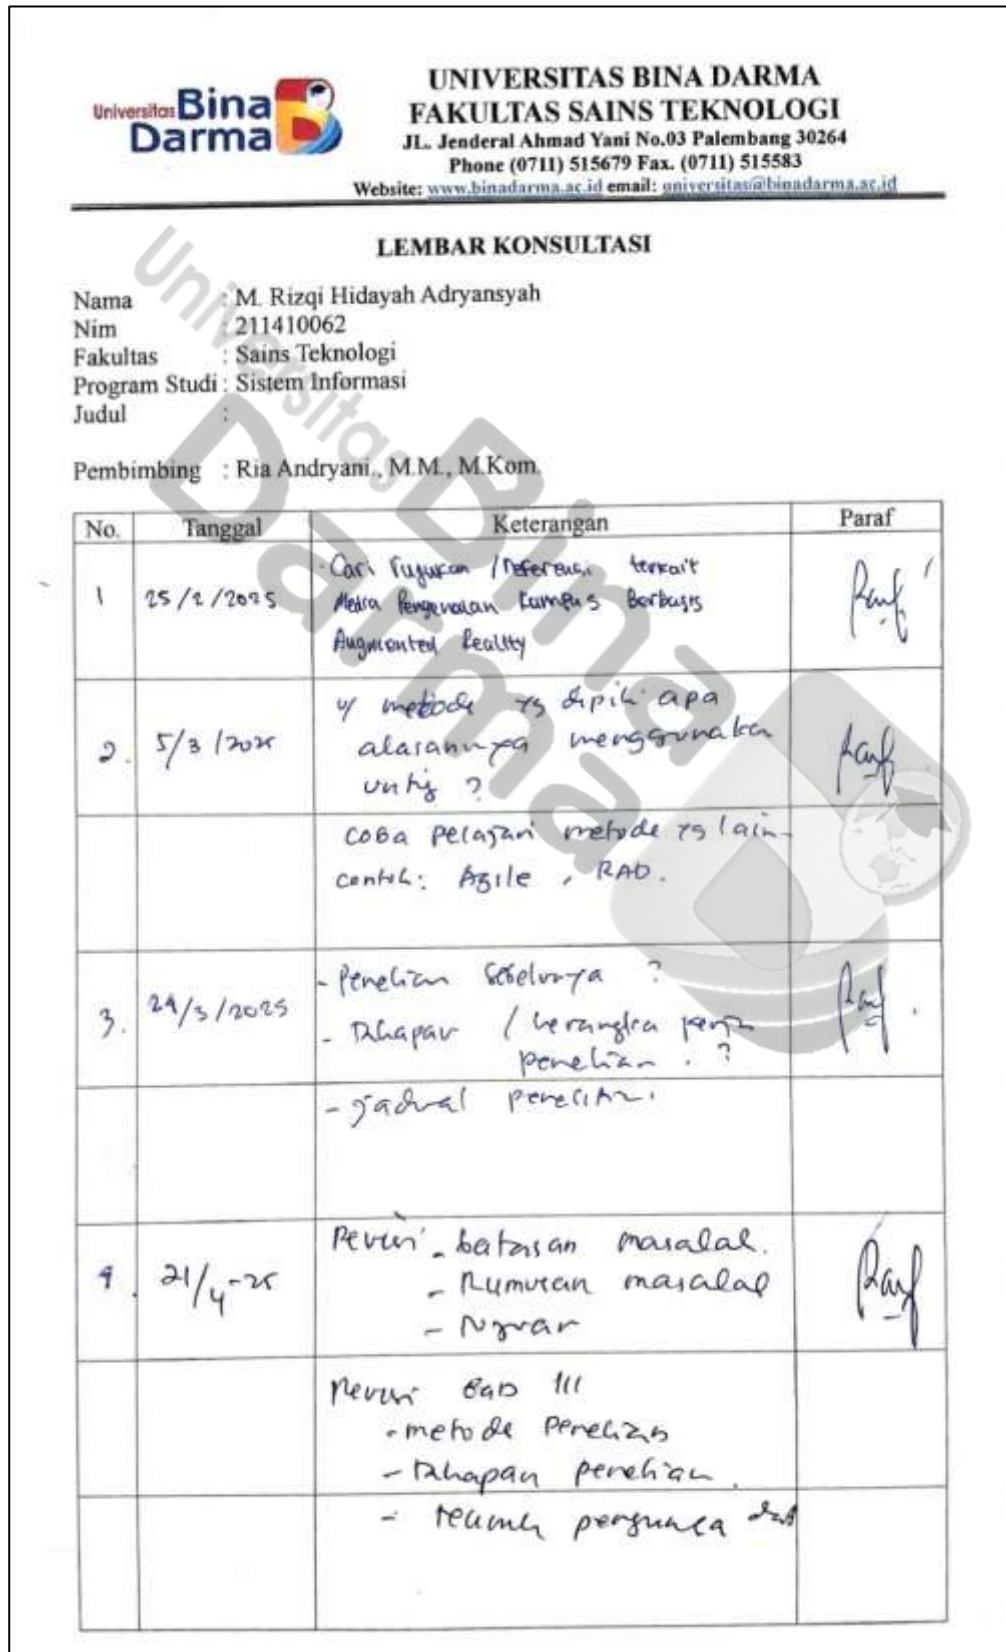 Universitas Bina Darma
UNIVERSITAS BINA DARMA
FAKULTAS SAINS TEKNOLOGI
JL. Jenderal Ahmad Yani No.03 Palembang 30264
Phone (0711) 515679 Fax. (0711) 515583
Website: www.binadarma.ac.id email: universitas@binadarma.ac.id
LEMBAR KONSULTASI
Nama : M. Rizqi Hidayah Adryansyah
Nim : 211410062
Fakultas : Sains Teknologi
Program Studi : Sistem Informasi
Judul :
Pembimbing : Ria Andryani., M.M., M.Kom.
No. Tanggal Keterangan Paraf
1 25/2/2025 - Cari Rujukan / Referensi terkait
Media Pengenalan Kampus Berbasis
Augmented Reality
2. 5/3/2025 u/ metode yg dipili apa
alasannya menggunakan
untuk ?
coba pelajari metode yg lain
contoh: Agile, RAD.
3. 24/3/2025 - Penelitian sebelumnya ?
- Tahapan / kerangka kerja
penelitian. ?
- jadwal penelitian.
4. 21/4-25 Revisi - batasan masalah.
- Rumusan masalah
- Tujuan
Revisi BAB III
- metode Penelitian
- Tahapan penelitian.
- Teknik
Universitas
Bina
Darma